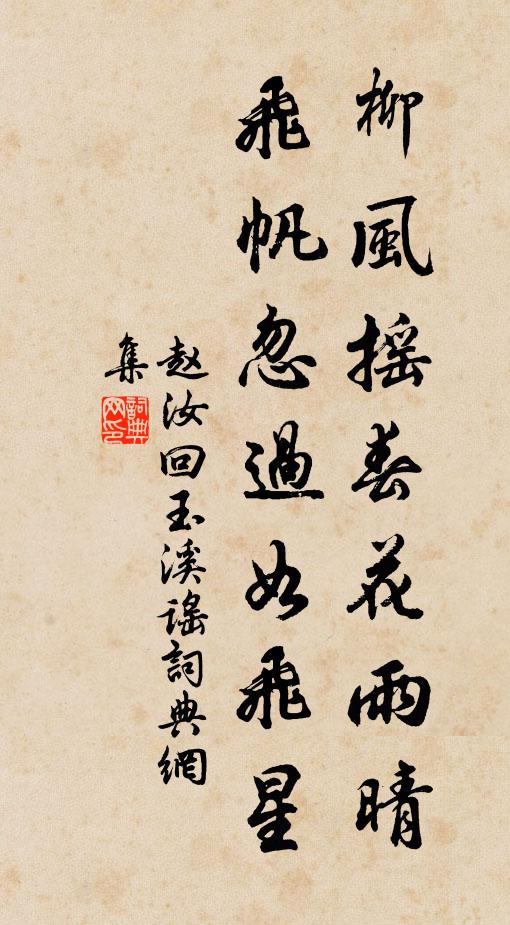 柳風摇春花雨晴
飛帆忽過如飛星
赵汝回玉溪谣詞典網
集
詞典
网印